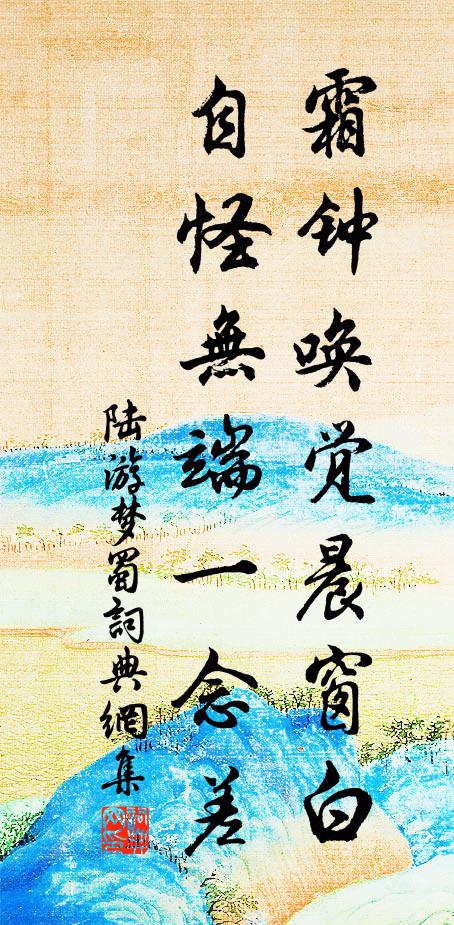 霜钟唤觉晨窗白
自怪無端一念差
陆游梦蜀詞典網集